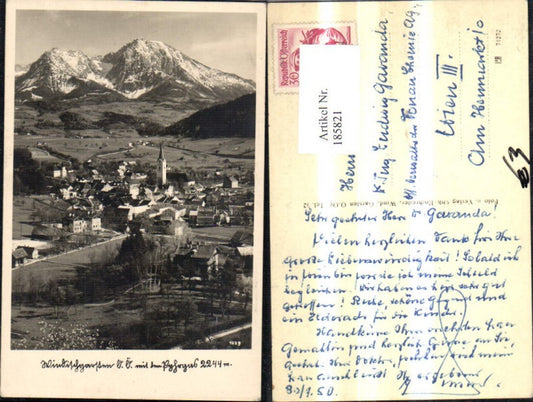 Windischgarsten O.Ö. mit dem Pyhrgas 2244 m.
Republik Österreich
30
Artikel Nr.
185821
Herrn
Ing. Ludwig Gavanda,
Donau Chemie AG,
Wien III.
Am Heumarkt 10
63
Sehr geehrter Herr Dr Gavanda!
Vielen herzlichen Dank für Ihre
große Liebenswürdigkeit! Sobald ich
in Wien bin werde ich meine Schuld
begleichen. Wir haben es hier sehr gut
getroffen! Ruhe, schöne Gegend und
ein Eldorado für die Kinder.
Handküsse Ihrer verehrten Frau
Gemahlin und herzliche Grüße an Sie,
Herr Doktor,
Ihr ergebener
30/7.50